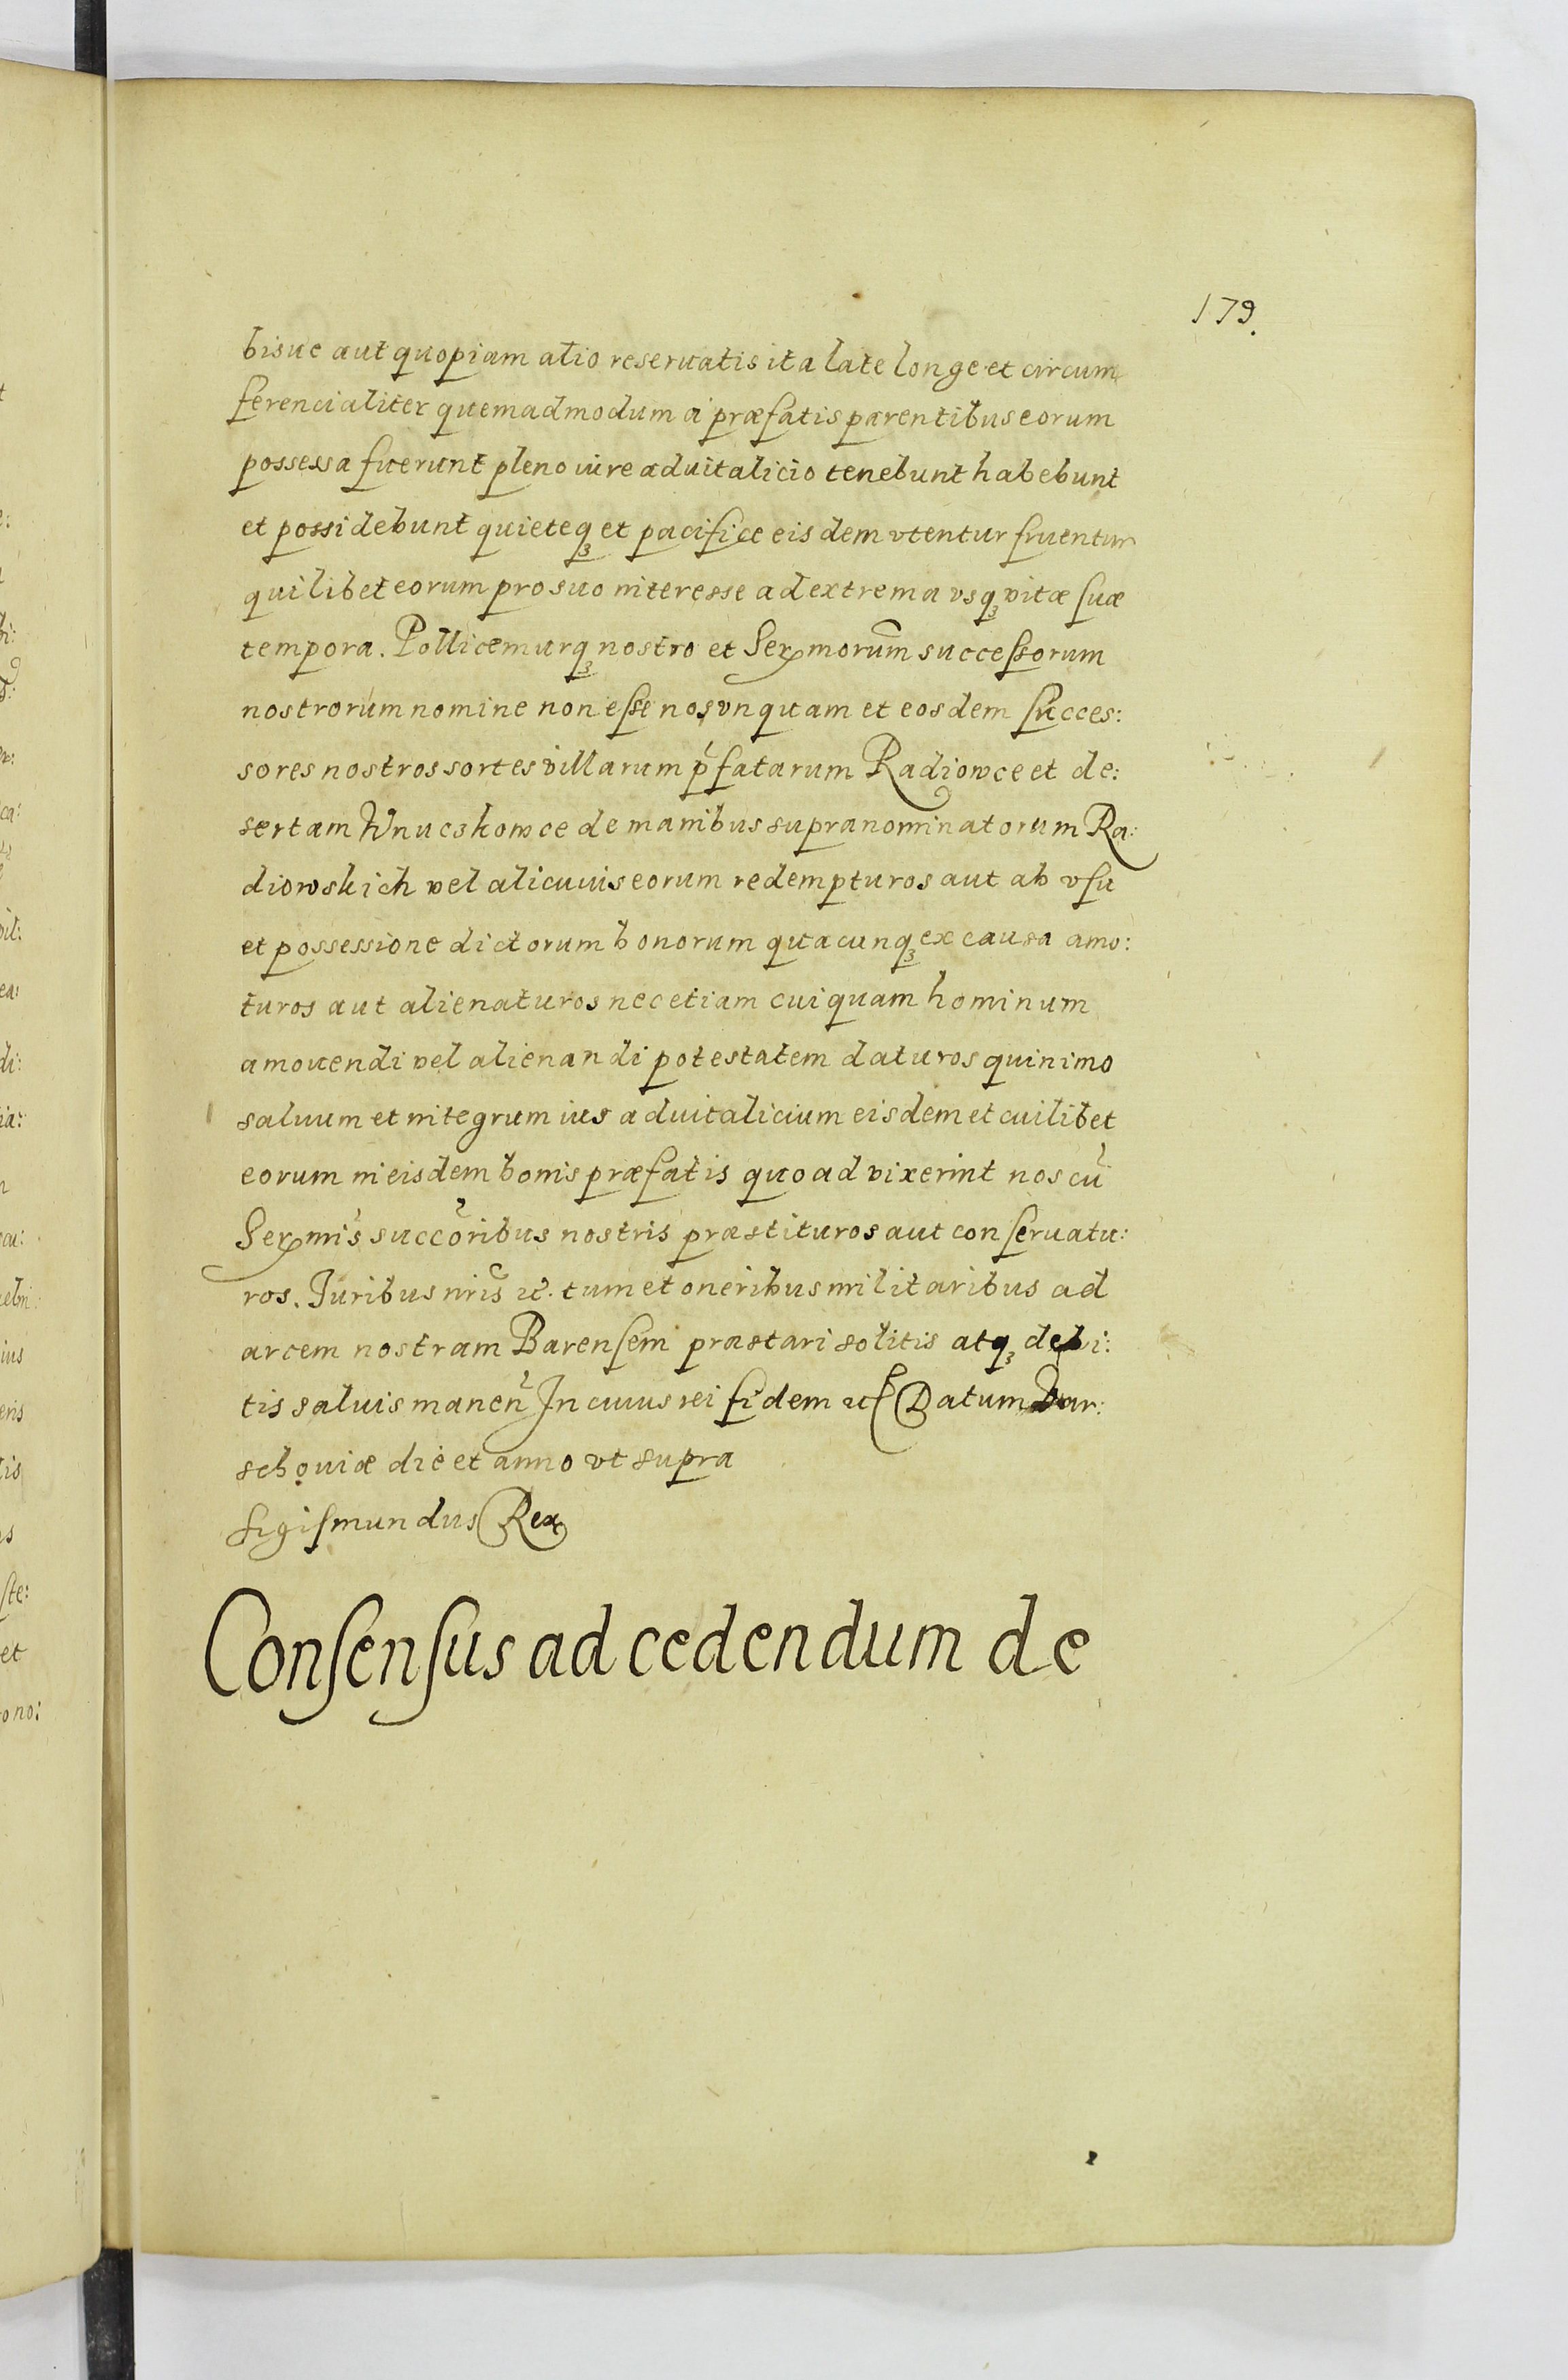 179.
bisue aut quopiam alio reseruatis ita late longe et circum
ferencialiter quemadmodum à præfatis parentibus eorum
possessa fuerunt pleno iure aduitalicio tenebunt habebunt
et possidebunt quieteqꝫ et pacifice eisdem vtentur fruentur
quilibet eorum pro suo interesse ad extrema vsqꝫ vitæ suæ
tempora. Pollicemurqꝫ nostro et Serᵉmorum̃ successorum
nostrorum nomine non esse nos vnquam et eosdem succes:
sores nostros sortes villarum p̃fatarum Radiowce et de:
sertam Wnucskowce de manibus supranominatorum Ra:
diowskich vel alicuius eorum redempturos aut ab vsu
et possessione dictorum bonorum quacunqꝫ ex causa amo:
turos aut alienaturos nec etiam cuiquam hominum
amouendi vel alienandi potestatem daturos quinimo
saluum et integrum ius aduitalicium eisdem et cuilibet
eorum in eisdem bonis præfatis quoad vixerint nos cũ
Serᵉmis̃ succõribus nostris præstituros aut conseruatu:
ros. Juribus nr̃is ꝛc. tum et oneribus militaribus ad
arcem nostram Barensem præstari solitis atqꝫ debi:
tis saluis maneñ In cuius rei fidem ꝛc Datum Var:
schouiæ die et anno vt supra
Sigismundus Rex
Consensus ad cedendum de